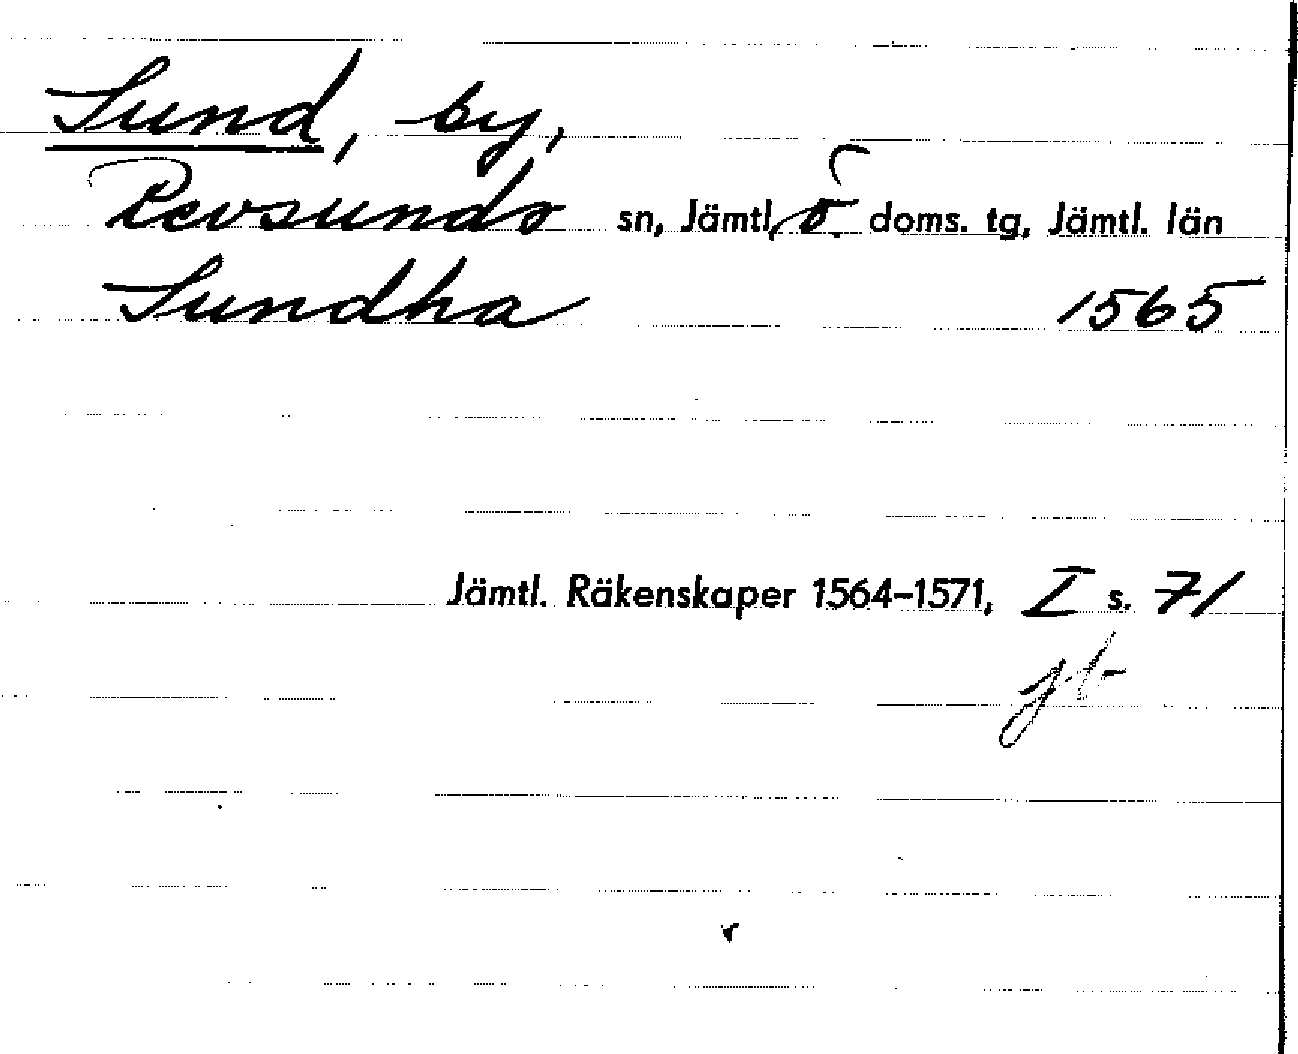 Sund, by,
Revsunds sn, Jämtl. ö. doms. tg, Jämtl. län
Sundha 1565
Jämtl. Räkenskaper 1564–1571, I s. 71
jb